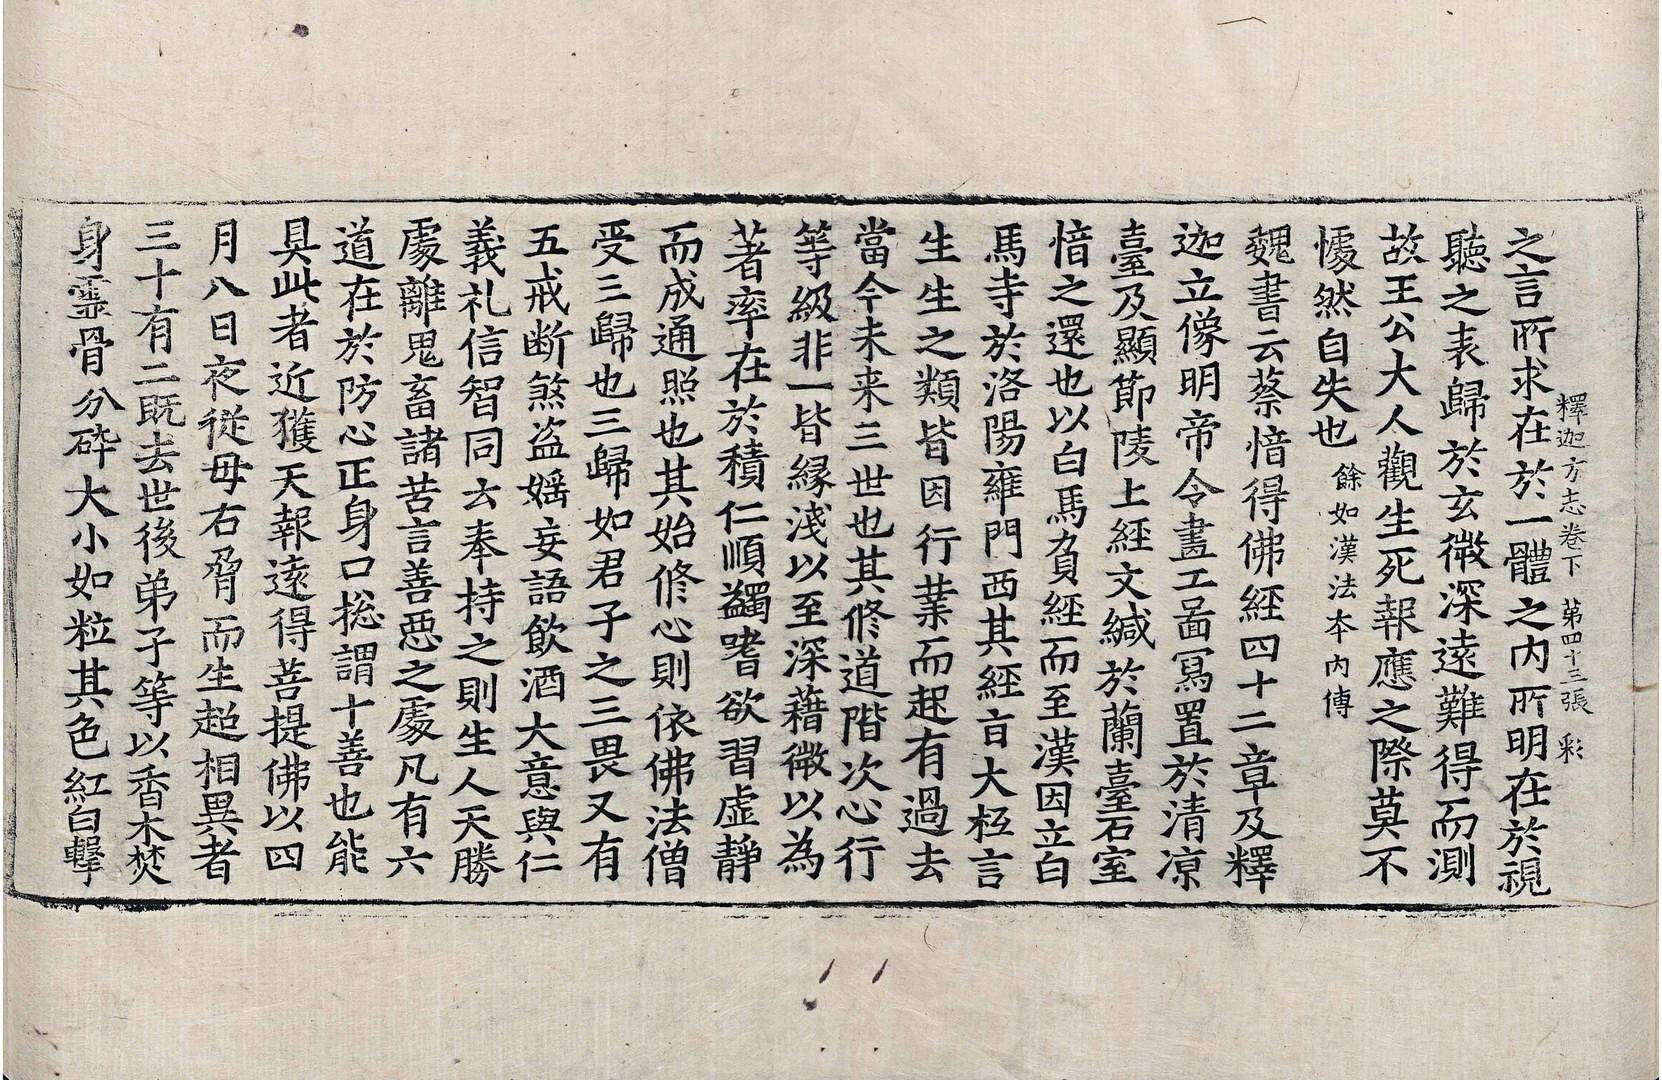 釋迦方志卷下 第四十三張 彩
之言所求在於一體之内所明在於視
聽之表歸於玄微深遠難得而測
故王公大人觀生死報應之際莫不
懅然自失也 餘如漢法本内傳
魏書云蔡愔得佛經四十二章及釋
迦立像明帝令畫工啚冩置於清凉
臺及顯節陵上經文緘於蘭臺石室
愔之還也以白馬負經而至漢因立白
馬寺於洛陽雍門西其經旨大抂言
生生之類皆因行業而起有過去
當今未来三世也其修道階次心行
等級非一皆縁淺以至深藉微以為
著率在於積仁順蠲嗜欲習虚靜
而成通照也其始修心則依佛法僧
受三歸也三歸如君子之三畏又有
五戒断煞盗婬妄語飲酒大意與仁
義礼信智同云奉持之則生人天勝
處離鬼畜諸苦言善惡之處凡有六
道在於防心正身口捴謂十善也能
具此者近獲天報遠得菩提佛以四
月八日夜從母右脅而生超相異者
三十有二既去世後弟子等以香木焚
身靈骨分碎大小如粒其色紅白擊